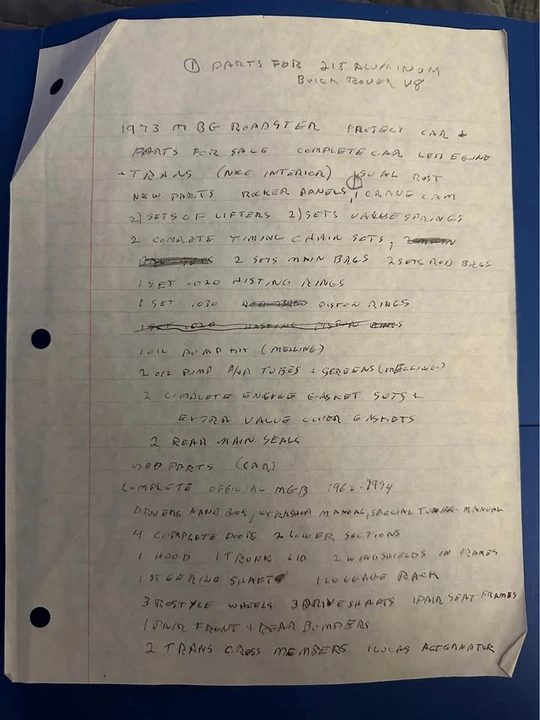 ① PARTS FOR 215 ALUMINUM
BUICK ROVER V8
1973 MBG ROADSTER PROJECT CAR +
PARTS FOR SALE COMPLETE CAR LESS EGINE
+ TRANS (NICE INTERIOR) USUAL RUST
NEW PARTS ROCKER PANELS, 1 CRANE CAM
2) SETS OF LIFTERS 2) SETS VALVE SPRINGS
2 COMPLETE TIMING CHAIN SETS,
2 SETS MAIN BRGS 2 SETS ROD BRGS
1 SET .020 HISTING RINGS
1 SET .030 PISTON RINGS
1 SET .020 HASTINGS PISTON RINGS
1 OIL PUMP KIT (MELLING)
2 OIL PUMP P/UP TUBES & SCREENS (MELLING)
2 COMPLETE ENGINE GASKET SETS &
EXTRA VALVE COVER GASKETS
2 REAR MAIN SEALS
USED PARTS (CAR)
COMPLETE OFFICIAL MGB 1962-1974
DRIVERS HAND BOOK, WORKSHOP MANUAL, SPECIAL MANUAL
4 COMPLETE DOORS 2 LOWER SECTIONS
1 HOOD 1 TRUNK LID 2 WINDSHIELDS IN FRAMES
1 STEERING SHAFT 1 LUGGAGE RACK
3 ROSTYLE WHEELS 3 DRIVESHAFTS 1 PAIR SEAT FRAMES
1 PAIR FRONT & REAR BUMPERS
2 TRANS CROSS MEMBERS 1 LUCAS ALTGANATOR